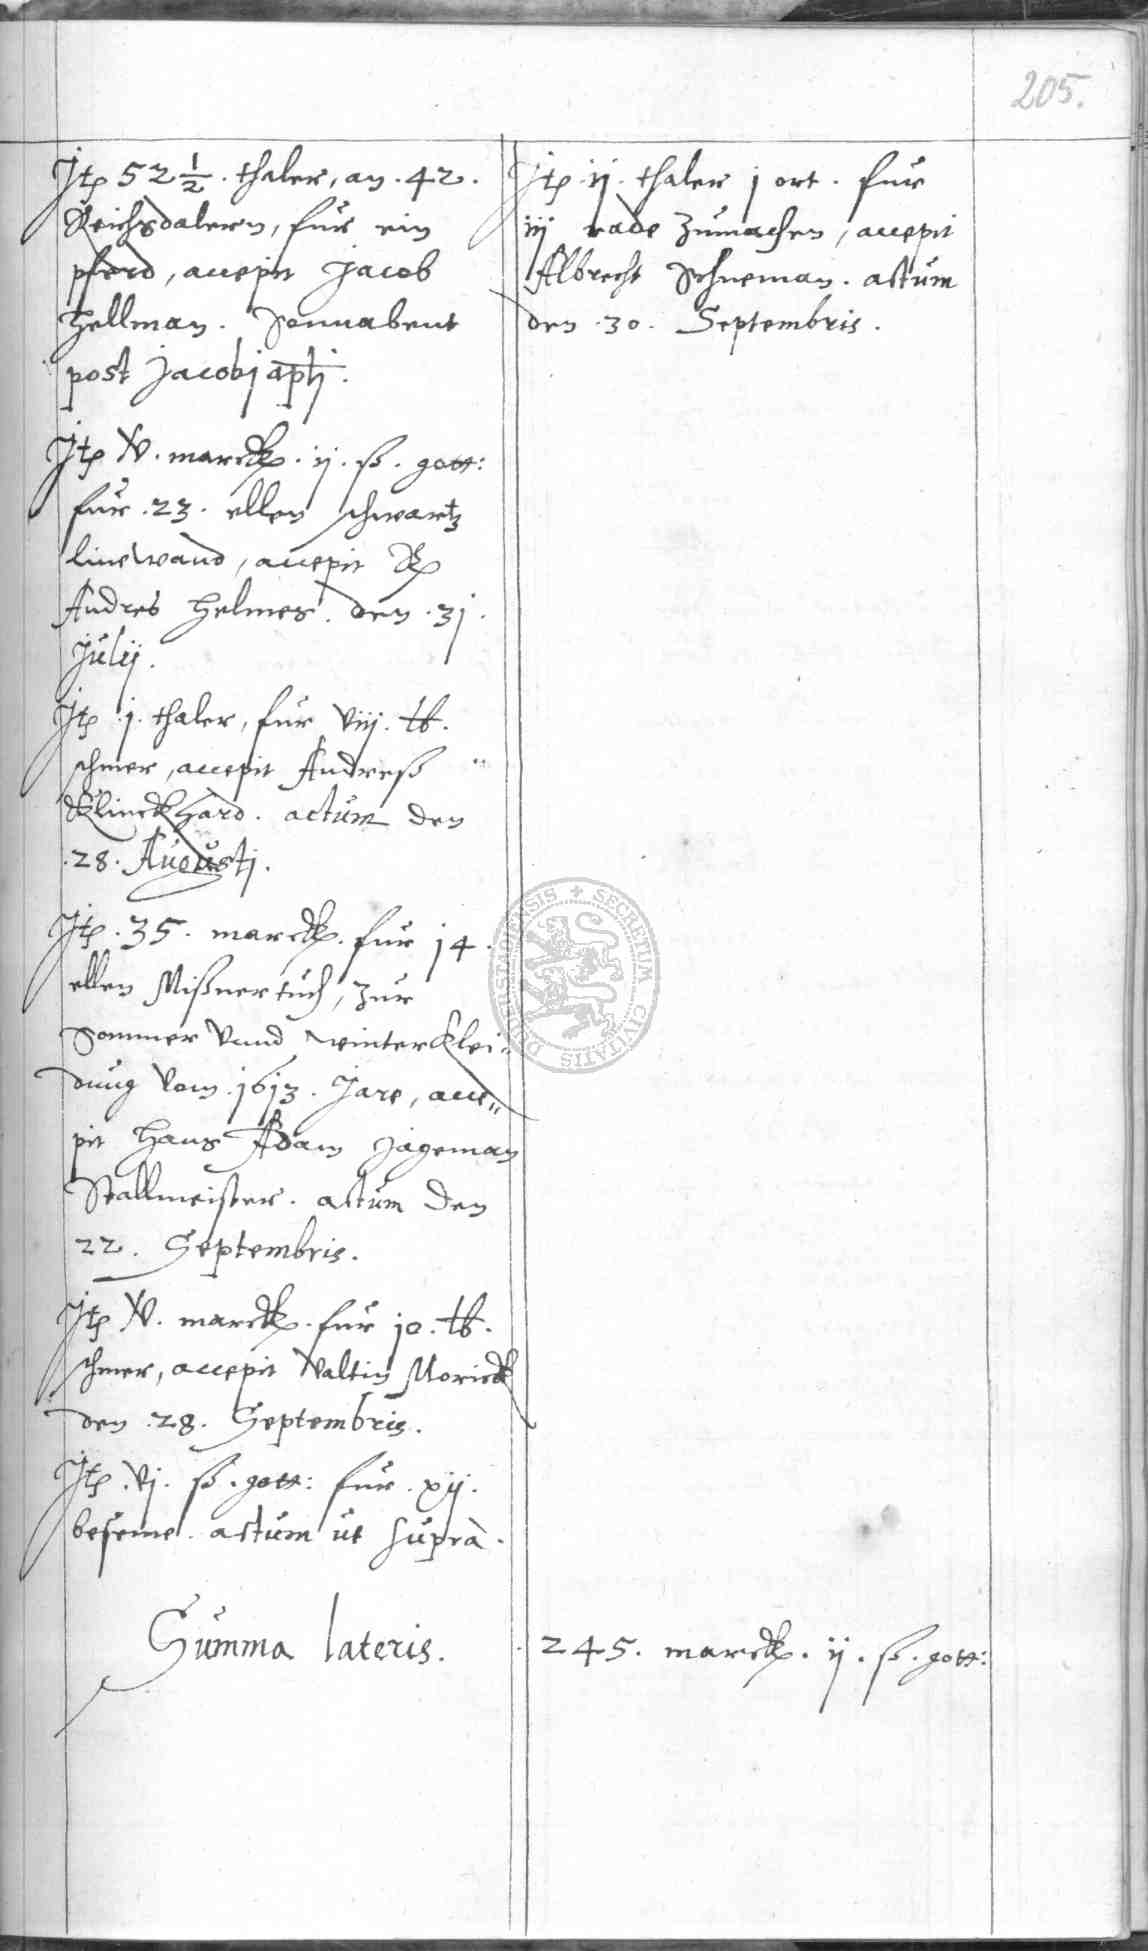 205.
Jtp 52 1/2. thaler, an .42.
Reichsdalern, fur ein
pferd, accepit Jacob
Hellman. Sonnabent
post Jacobj apli.
Jtp XV. marck. ij. ß. gott:
fur .23. ellen schwartz
linewand, accepit
Andres Helmes. den .31.
Julij.
Jtp .j. thaler, fur viij. lb.
schmer, accepit Andreß
Klinckhard. actum den
.28. Augustj.
Jtp .35. marck. fur 14.
ellen Mißner tuch, zur
Sommer vnnd winter klei„
dung vom .1613. Jare, acce„
pit Hans Adam Jageman
Stallmeister. actum den
22. Septembris.
Jtp XV. marck. fur 10. lb.
schmer, accepit Valtin Morick
den .28. Septembris.
Jtp .vj. ß. gott: fur .xij.
beseme. actum ut suprà.
Summa lateris.
Jtp .ij. thaler j ort. fur
iij rade zumachen, accepit
Albrecht Schneman. actum
den .30. Septembris.
245. marck. ij. ß. gott:
SECRETUM CIVITATIS DUDERSTADIENSIS